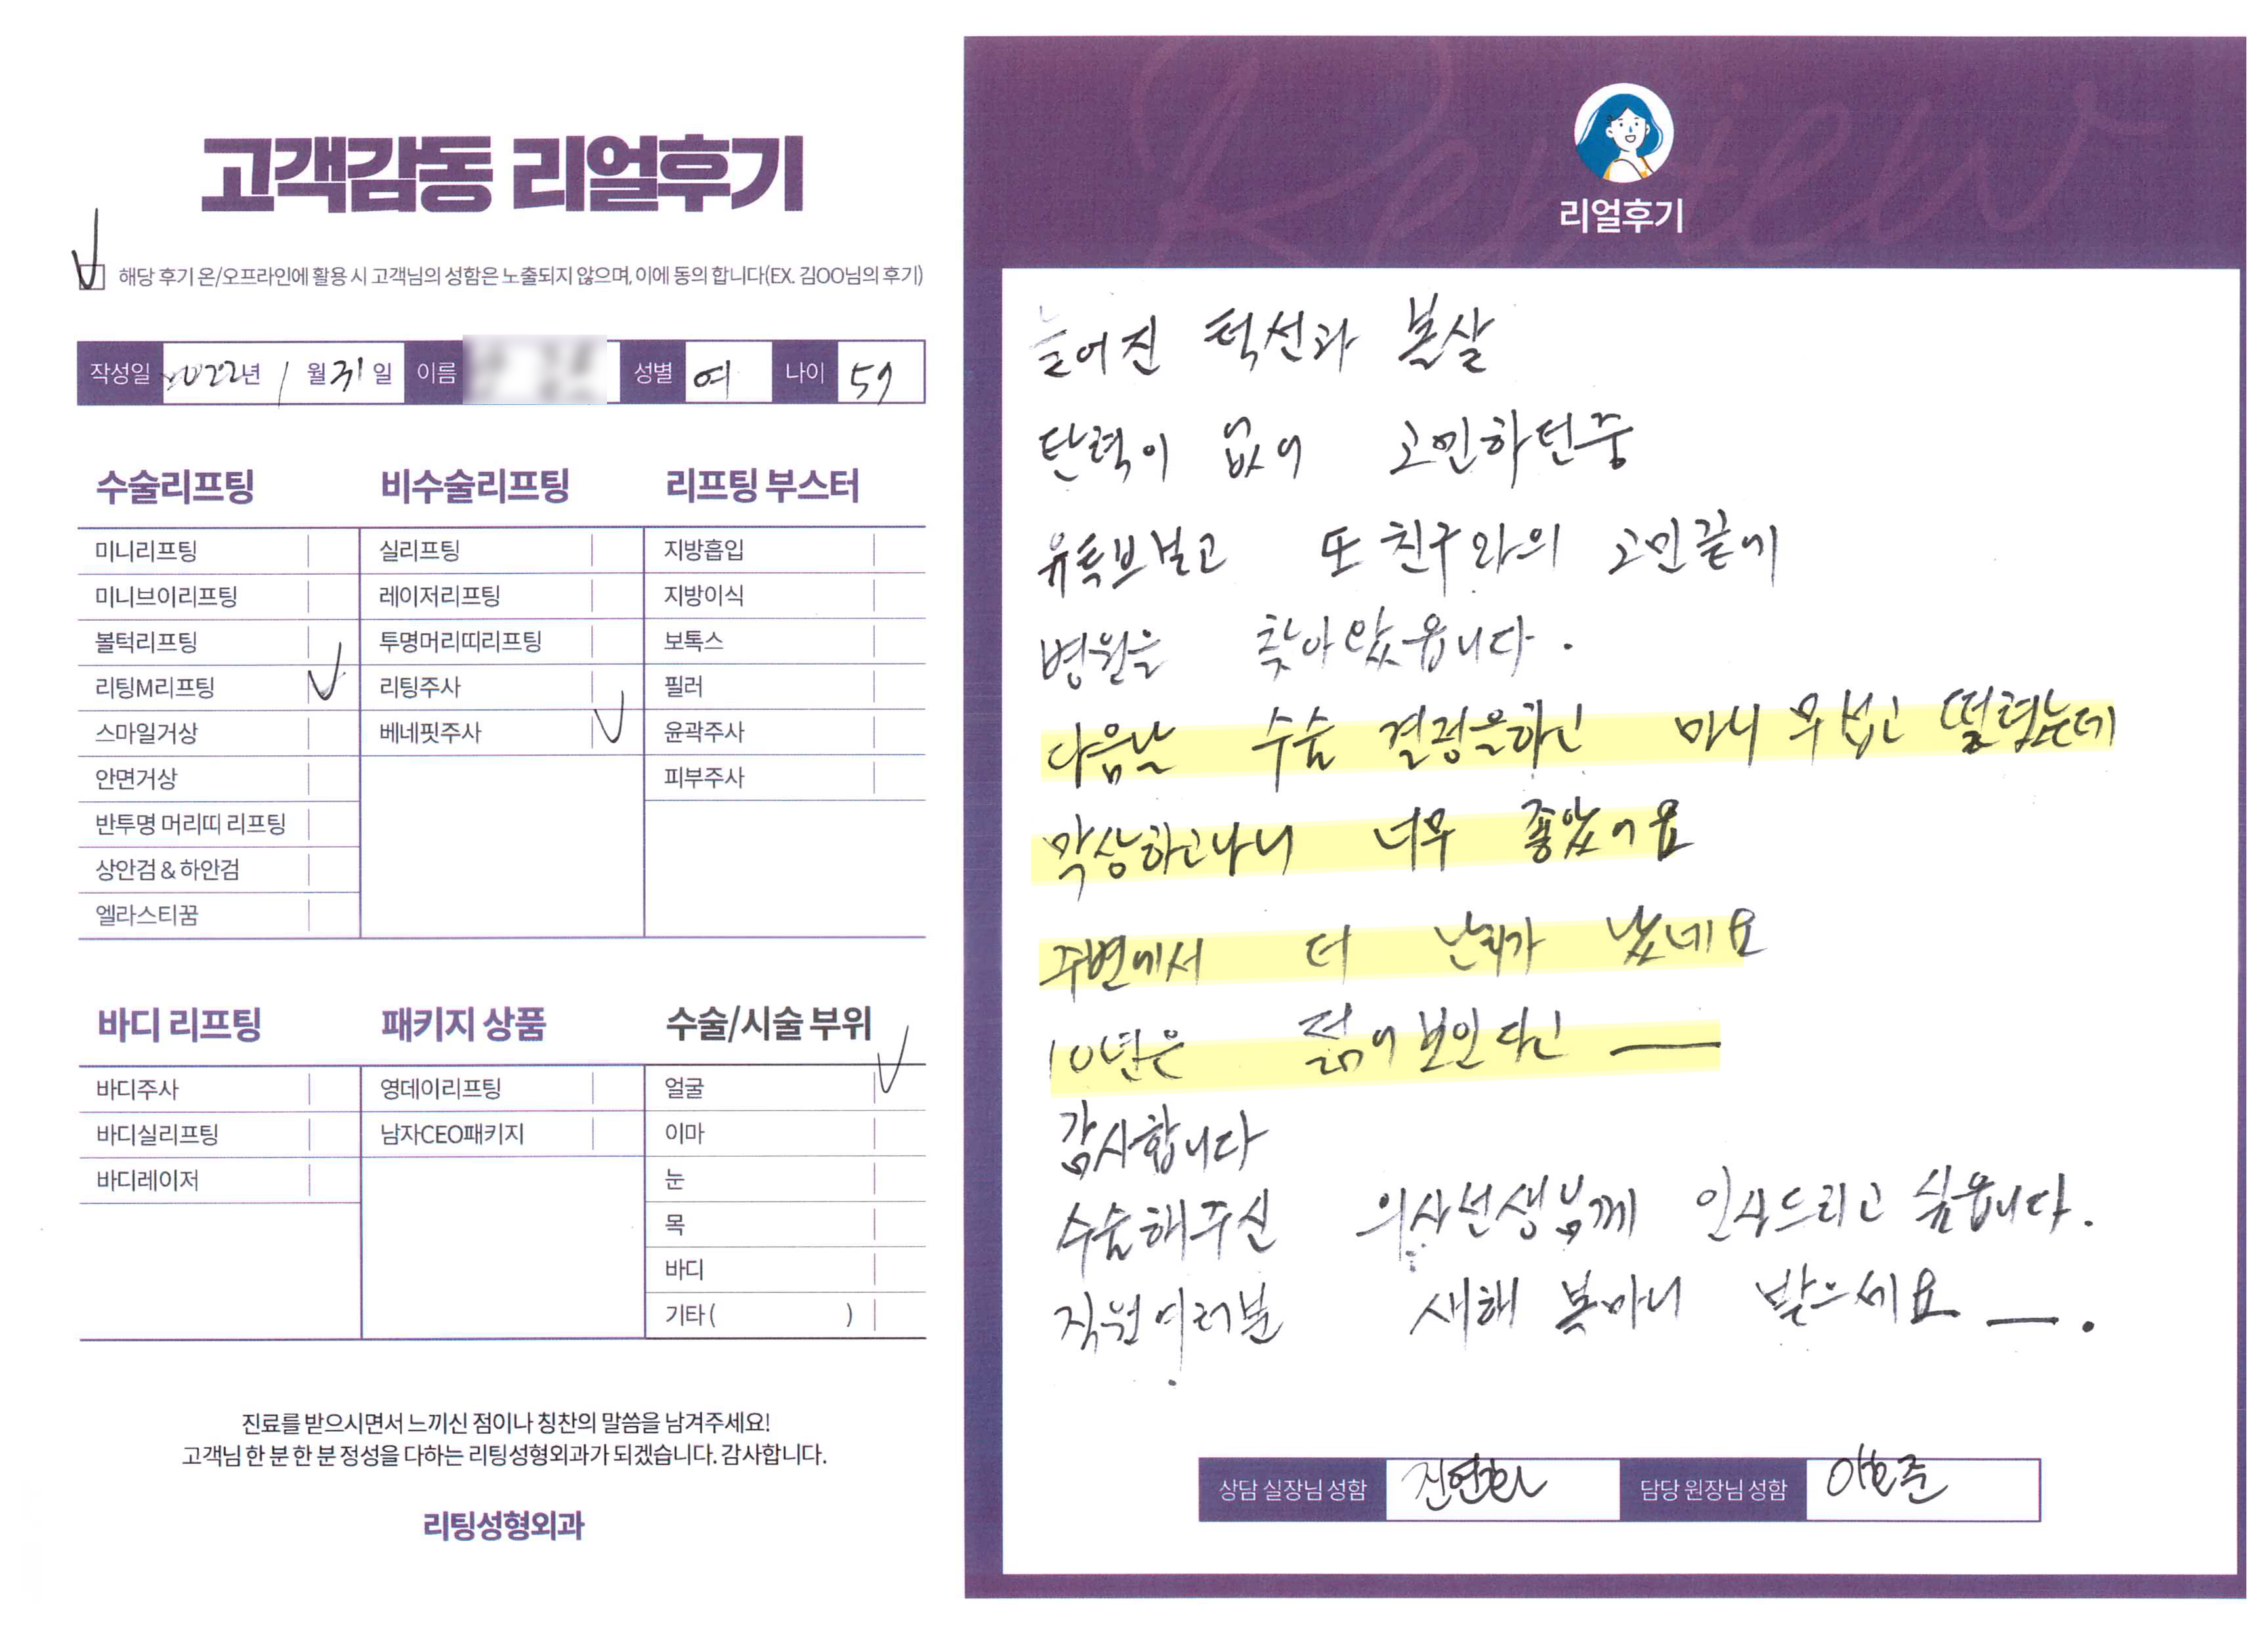 고객감동 리얼후기
해당 후기 온/오프라인에 활용 시 고객님의 성함은 노출되지 않으며, 이에 동의 합니다(EX. 김OO님의 후기)
작성일 2022년 1월 31일 이름 성별 여 나이 59
수술리프팅
미니리프팅
미니브이리프팅
볼턱리프팅
리팅M리프팅
스마일거상
안면거상
반투명 머리띠 리프팅
상안검 & 하안검
엘라스티꿈
비수술리프팅
실리프팅
레이저리프팅
투명머리띠리프팅
리팅주사
베네핏주사
리프팅 부스터
지방흡입
지방이식
보톡스
필러
윤곽주사
피부주사
바디 리프팅
바디주사
바디실리프팅
바디레이저
패키지 상품
영데이리프팅
남자CEO패키지
수술/시술 부위
얼굴
이마
눈
목
바디
기타 ( )
진료를 받으시면서 느끼신 점이나 칭찬의 말씀을 남겨주세요!
고객님 한 분 한 분 정성을 다하는 리팅성형외과가 되겠습니다. 감사합니다.
리팅성형외과
Review
리얼후기
늘어진 턱선과 볼살
탄력이 없어 고민하던중
유튝브보고 또 친구와의 고민끝에
병원을 찾아왔읍니다.
다음날 수술 결정을하고 마니 무섭고 떨렸는데
막상하고나니 너무 좋았어요
주변에서 더 난리가 났네요
10년은 젊어보인다고 —
감사합니다
수술해주신 의사선생님께 인사드리고 싶읍니다.
직원여러분 새해 복마니 받으세요 —.
상담 실장님 성함 담당 원장님 성함